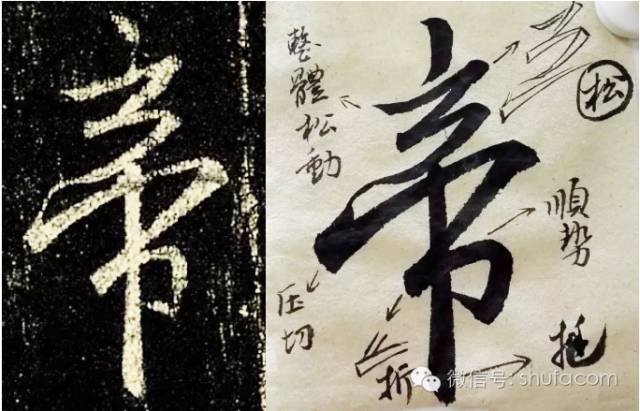 帝
帝
整體松動
松
順势
压切
折
挺
微信号: shufacom